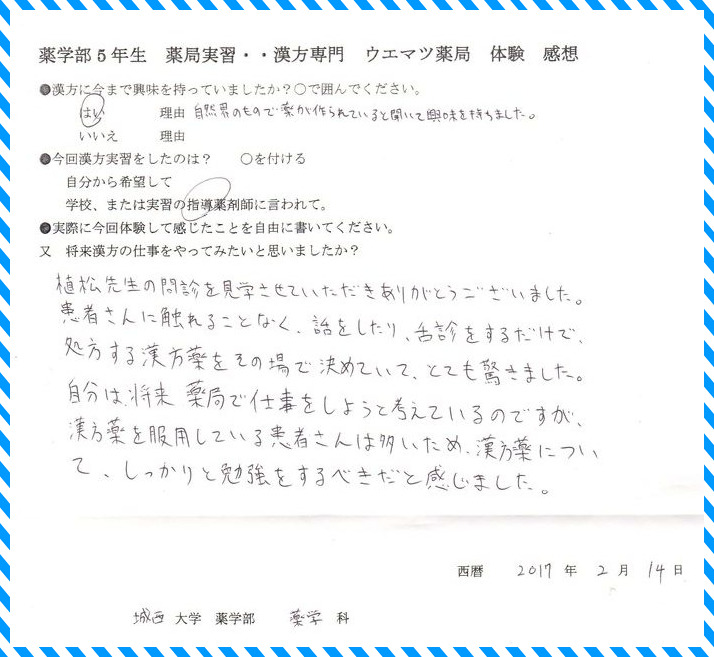 薬学部5年生　薬局実習・・漢方専門　ウエマツ薬局　体験　感想
●漢方に今まで興味を持っていましたか？○で囲んでください。
はい　理由　自然界のもので薬が作られていると聞いて興味を持ちました。
いいえ　理由
●今回漢方実習をしたのは？　○を付ける
自分から希望して
学校、または実習の指導薬剤師に言われて。
●実際に今回体験して感じたことを自由に書いてください。
又　将来漢方の仕事をやってみたいと思いましたか？
植松先生の問診を見学させていただきありがとうございました。
患者さんに触れることなく、話をしたり、舌診をするだけで、
処方する漢方薬をその場で決めていて、とても驚きました。
自分は、将来 薬局で仕事をしようと考えているのですが、
漢方薬を服用している患者さんは多いため、漢方薬につい
て、しっかりと勉強をするべきだと感じました。
西暦　2017 年　2 月　14 日
城西 大学　薬学部　薬学 科